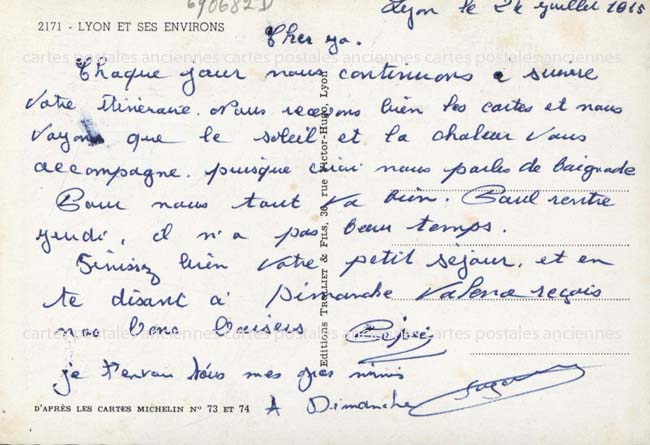 690682D
Lyon le 24 Juillet
2171 - LYON ET SES ENVIRONS
Cher
Chaque jour nous continuons a suivre
votre itinéraire. Nous recevons bien les cartes et nous
voyons que le soleil et la chaleur vous
accompagne. puisque nous parles de baignade
Pour nous tout va bien. Paul rentre
jeudi, il n'a pas beau temps.
Finissez bien votre petit séjour, et en
te disant à Dimanche reçois
nos bons baisers
je t'envoie tous mes gros mimis
A Dimanche
D'APRÈS LES CARTES MICHELIN Nº 73 ET 74
Editions TROLLIET & FILS, 30, rue Victor-Hugo, Lyon
cartes postales anciennes cartes postales anciennes cartes postales anciennes
cartes postales anciennes cartes postales anciennes cartes postales anciennes